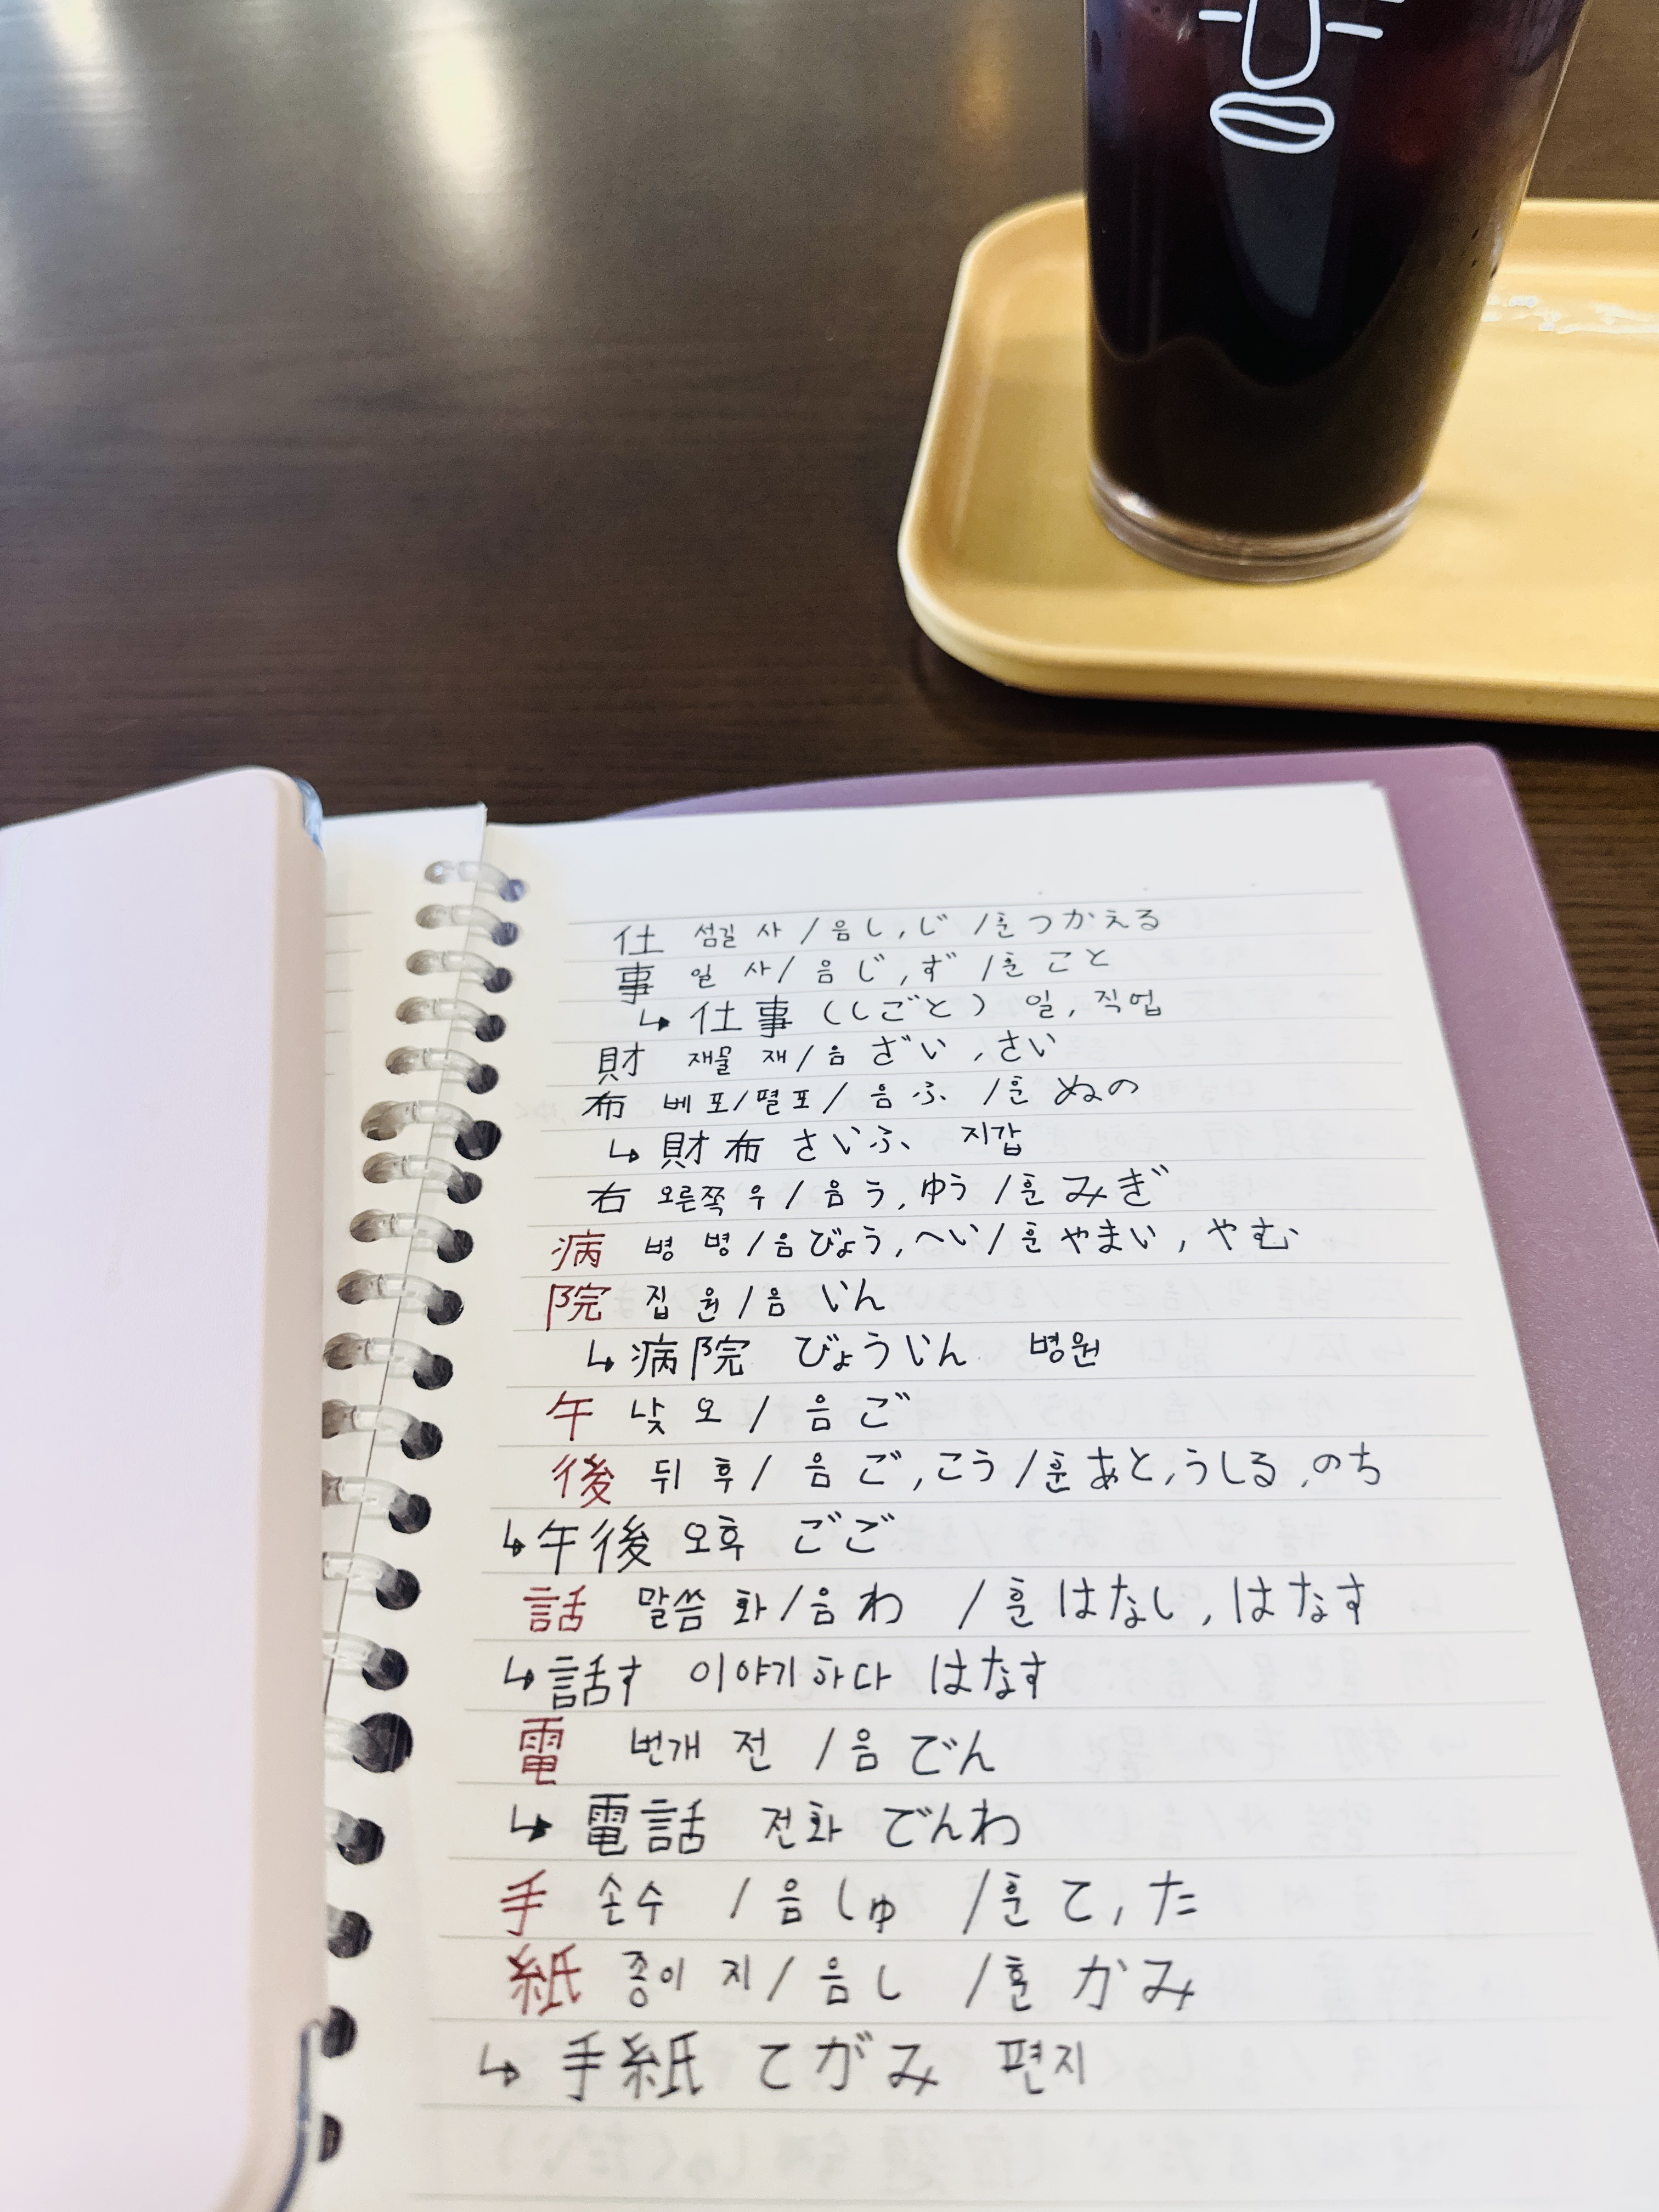 仕 섬길 사 / 음 し, じ / 훈 つかえる
事 일 사 / 음 じ, ず / 훈 こと
↳ 仕事 (しごと) 일, 직업
財 재물 재 / 음 ざい, さい
布 베 포 / 펼 포 / 음 ふ / 훈 ぬの
↳ 財布 さいふ 지갑
右 오른쪽 우 / 음 う, ゆう / 훈 みぎ
病 병 병 / 음 びょう, へい / 훈 やまい, やむ
院 집 원 / 음 いん
↳ 病院 びょういん 병원
午 낮 오 / 음 ご
後 뒤 후 / 음 ご, こう / 훈 あと, うしろ, のち
↳ 午後 오후 ごご
話 말씀 화 / 음 わ / 훈 はなし, はなす
↳ 話す 이야기하다 はなす
電 번개 전 / 음 でん
↳ 電話 전화 でんわ
手 손 수 / 음 しゅ / 훈 て, た
紙 종이 지 / 음 し / 훈 かみ
↳ 手紙 てがみ 편지